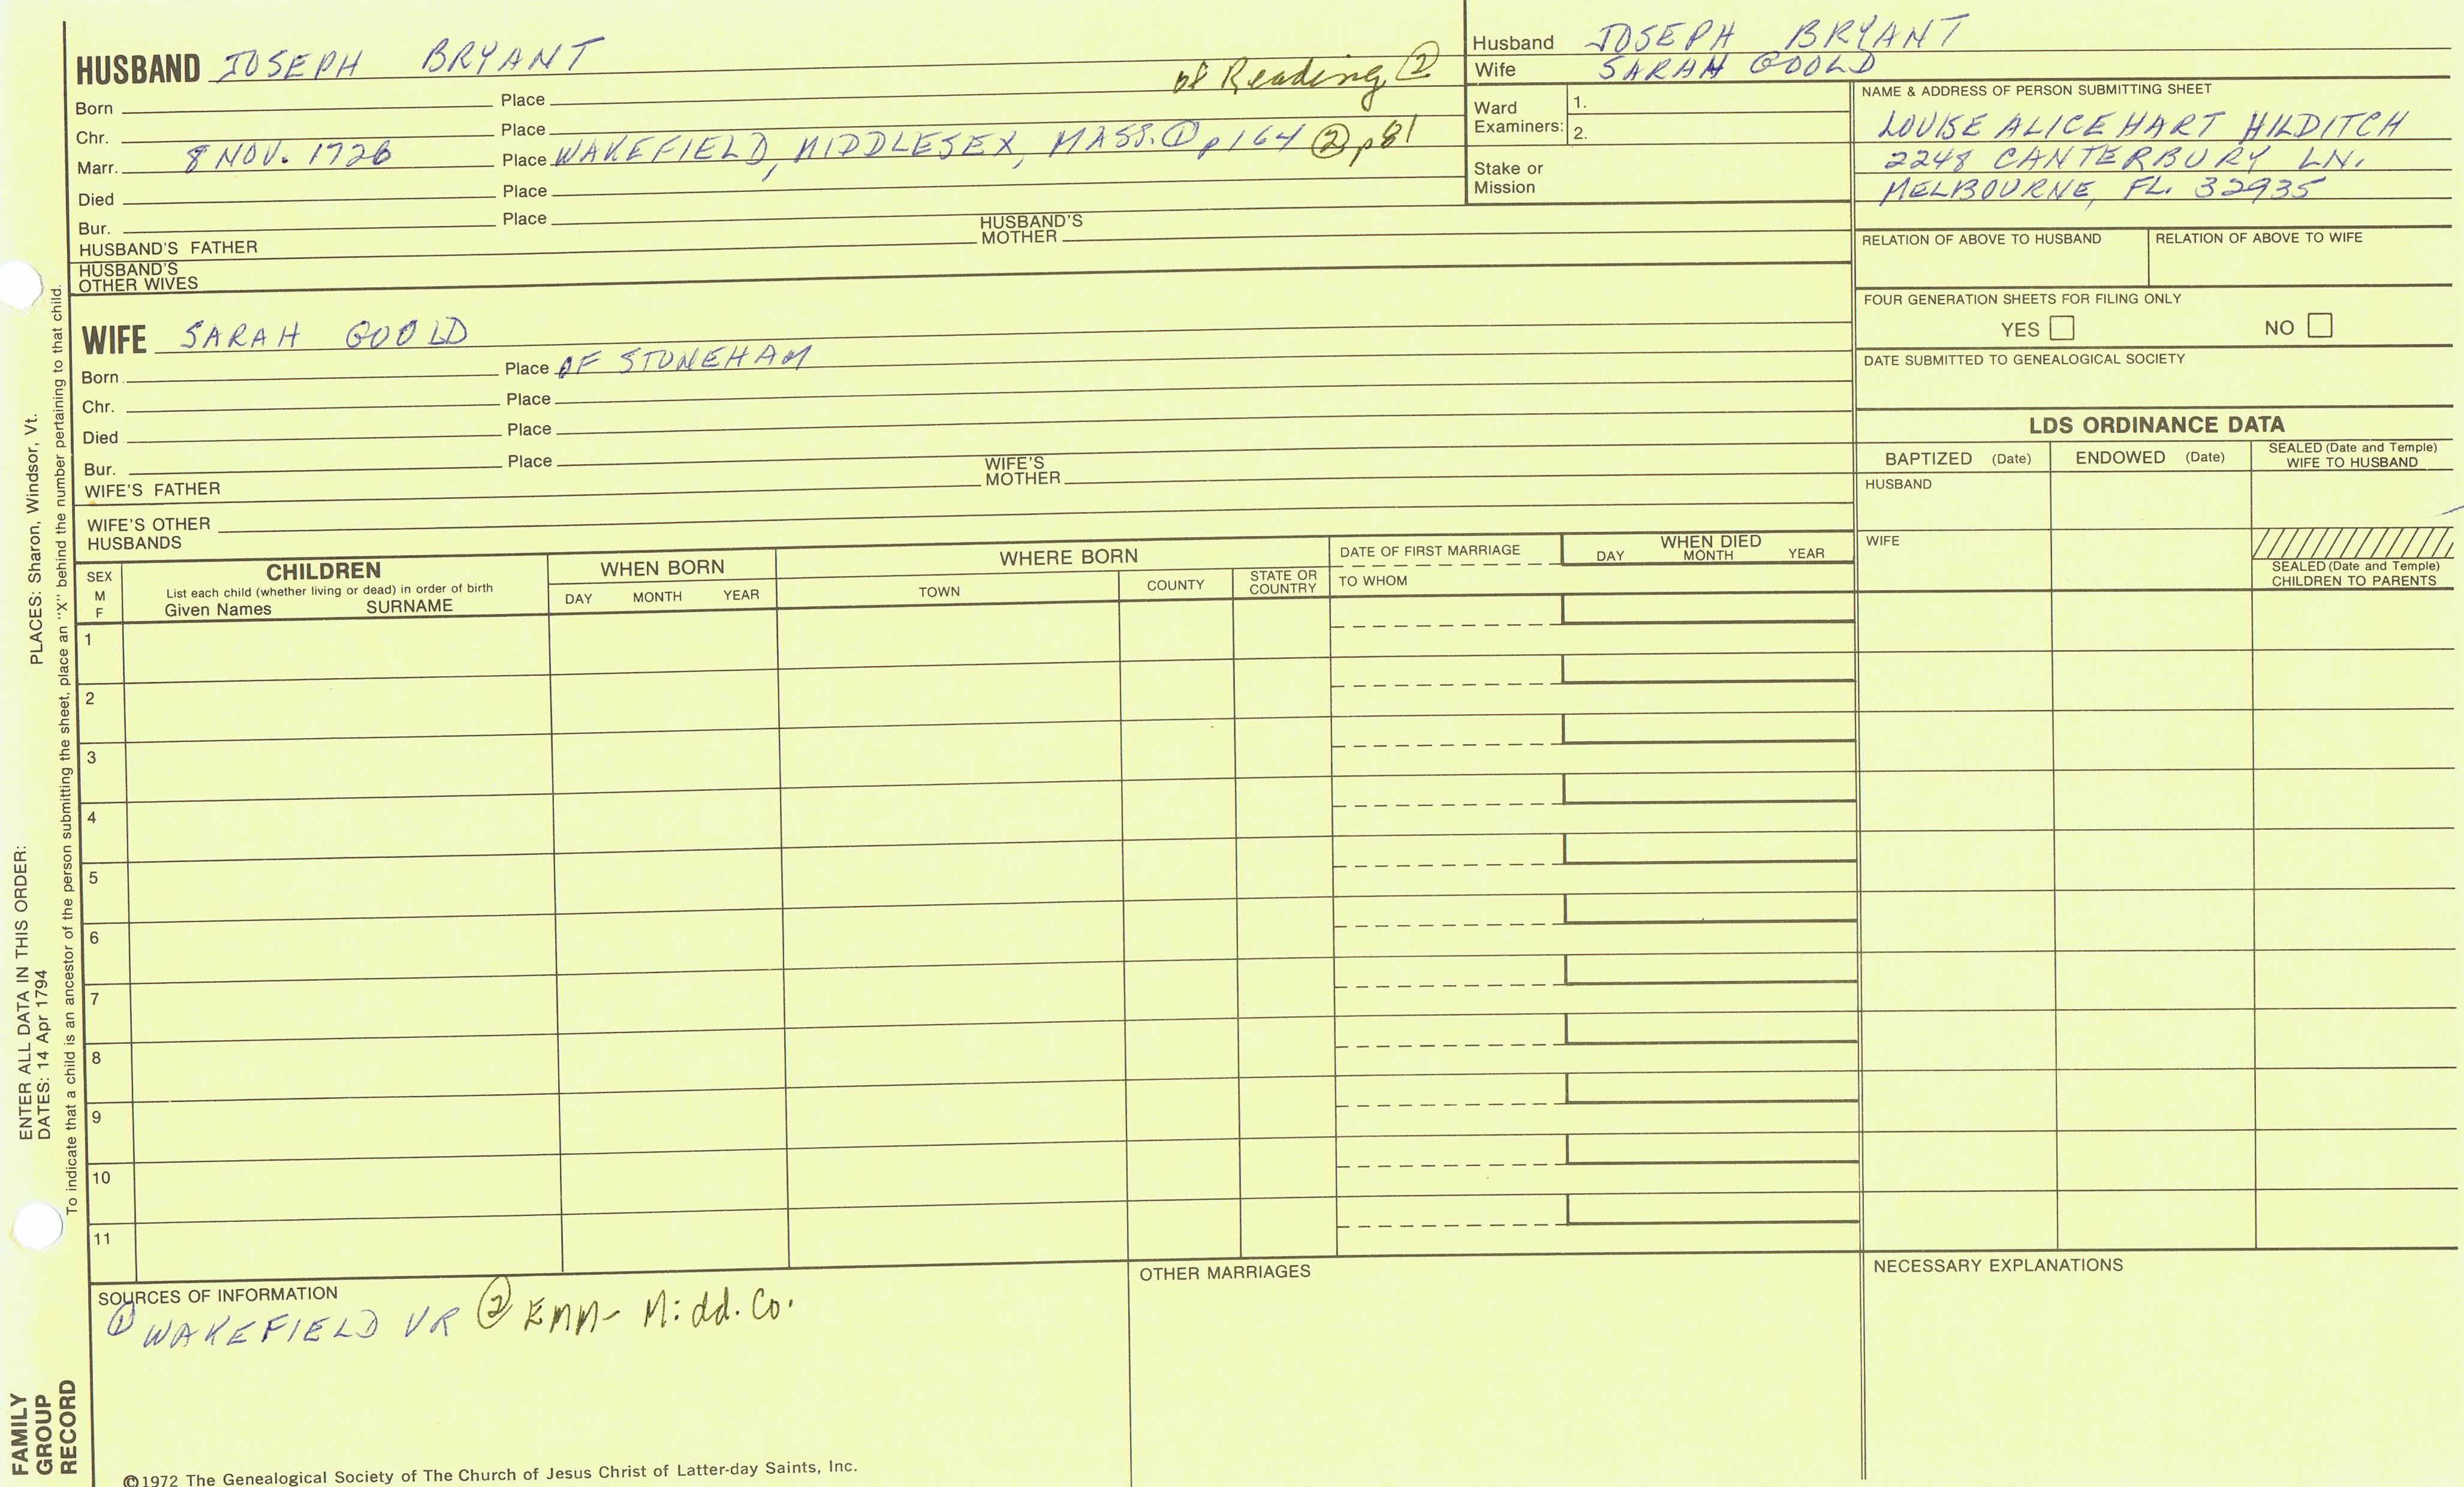 HUSBAND JOSEPH BRYANT of Reading ②
Born Place
Chr. Place
Marr. 8 NOV. 1726 Place WAKEFIELD, MIDDLESEX, MASS. ① p 164 ② p 81
Died Place
Bur. Place
HUSBAND'S FATHER HUSBAND'S MOTHER
HUSBAND'S OTHER WIVES
Husband JOSEPH BRYANT
Wife SARAH GOOLD
Ward Examiners: 1.
2.
Stake or Mission
NAME & ADDRESS OF PERSON SUBMITTING SHEET
LOUISE ALICE HART HILDITCH
2248 CANTERBURY LN.
MELBOURNE, FL. 32935
RELATION OF ABOVE TO HUSBAND RELATION OF ABOVE TO WIFE
FOUR GENERATION SHEETS FOR FILING ONLY
YES NO
DATE SUBMITTED TO GENEALOGICAL SOCIETY
WIFE SARAH GOOLD
Born Place OF STONEHAM
Chr. Place
Died Place
Bur. Place
WIFE'S FATHER WIFE'S MOTHER
WIFE'S OTHER HUSBANDS
LDS ORDINANCE DATA
BAPTIZED (Date) ENDOWED (Date) SEALED (Date and Temple) WIFE TO HUSBAND
HUSBAND
WIFE
SEALED (Date and Temple) CHILDREN TO PARENTS
SEX M F
CHILDREN
List each child (whether living or dead) in order of birth
Given Names SURNAME
WHEN BORN
DAY MONTH YEAR
WHERE BORN
TOWN COUNTY STATE OR COUNTRY
DATE OF FIRST MARRIAGE
TO WHOM
WHEN DIED
DAY MONTH YEAR
1
2
3
4
5
6
7
8
9
10
11
SOURCES OF INFORMATION
① WAKEFIELD VR ② EMM- Midd. Co.
OTHER MARRIAGES
NECESSARY EXPLANATIONS
©1972 The Genealogical Society of The Church of Jesus Christ of Latter-day Saints, Inc.
FAMILY GROUP RECORD
ENTER ALL DATA IN THIS ORDER:
DATES: 14 Apr 1794 PLACES: Sharon, Windsor, Vt.
To indicate that a child is an ancestor of the person submitting the sheet, place an "X" behind the number pertaining to that child.